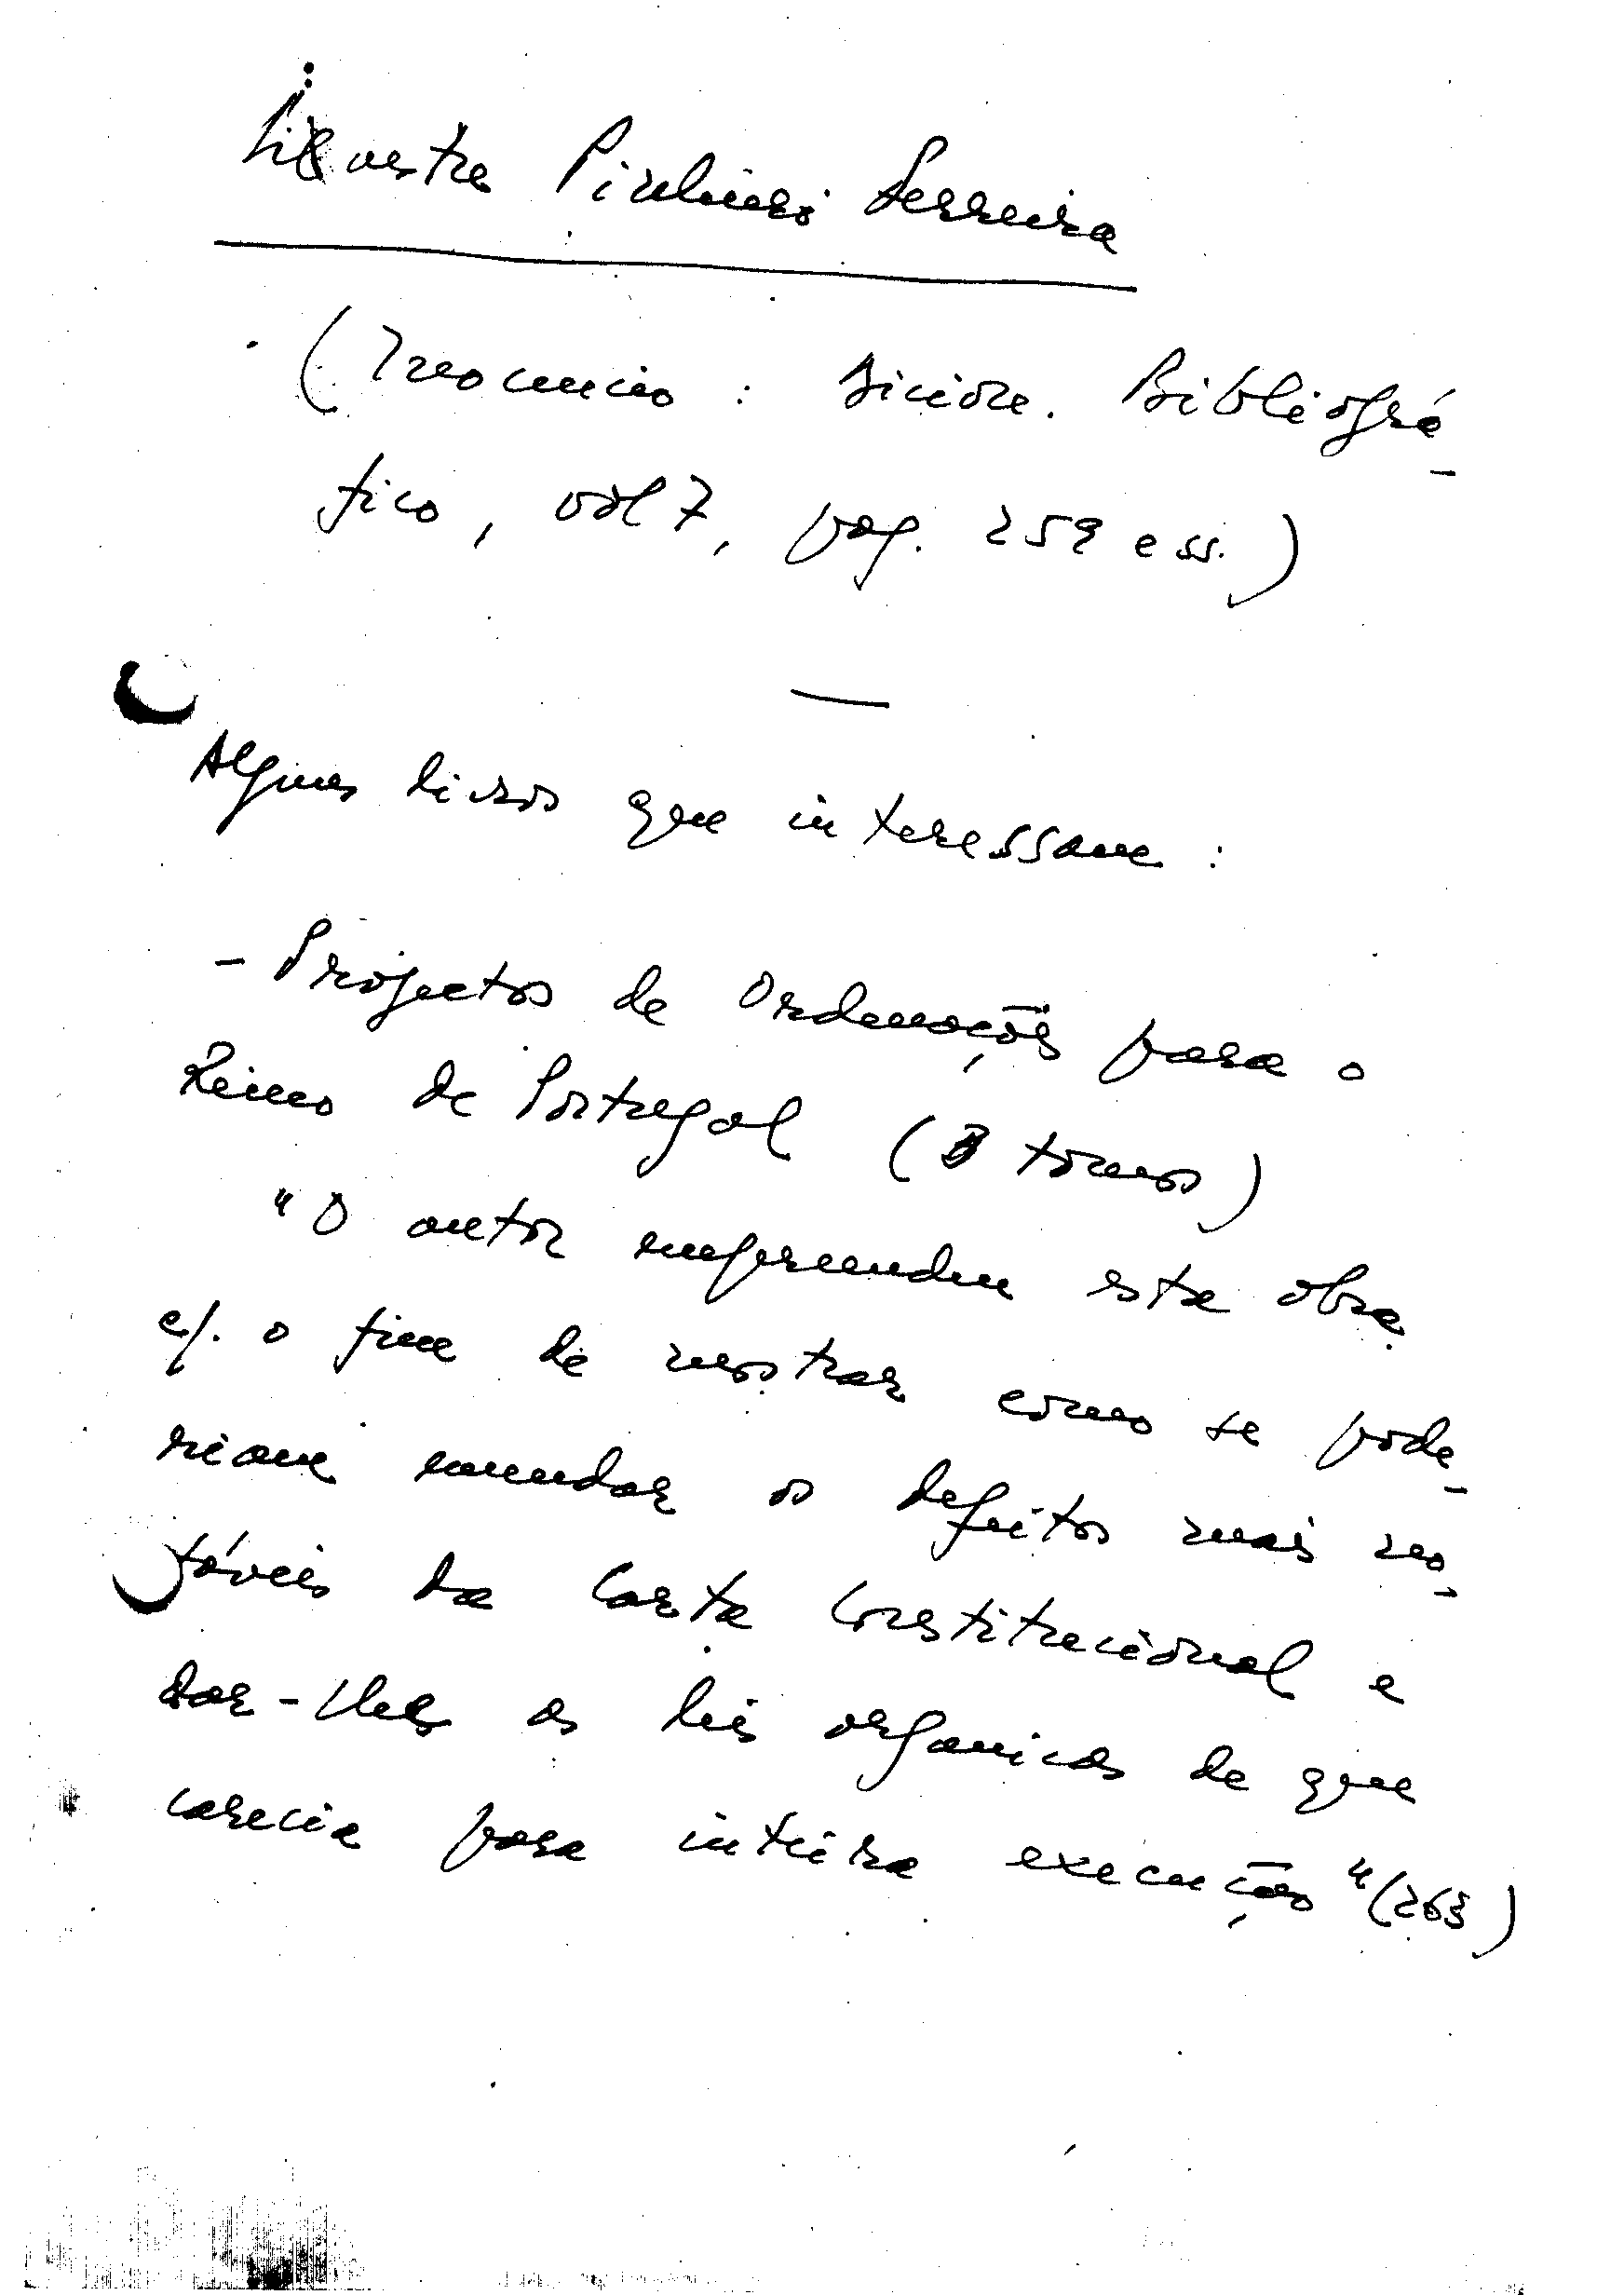 Silvestre Pinheiro Ferreira
(Inocencio : Dicion. Bibliográ-
fico, vol 7, pag. 259 e ss.)
Algumas livros que interessam :
- Projectos de Ordenações para o
Reino de Portugal (3 tomos)
"O autor empreendeu esta obra
c/. o fim de mostrar como se pode-
riam emendar os defeitos mais no-
táveis da Carta Constitucional e
dar-lhes as leis organicas de que
carecia para inteira execução" (263)